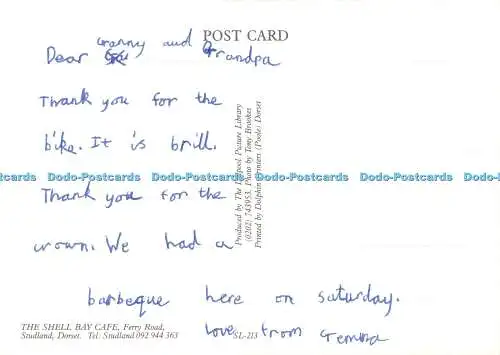 POST CARD
Dear Granny and Grandpa
Thank you for the
bike. It is brill.
Dodo-Postcards Dodo-Postcards Dodo-Postcards Dodo-Postcards Dodo-Postcards Dodo-Postcards
Thank you for the
crown. We had a
barbeque here on Saturday.
love from Gemma
Produced by The Liverpool Picture Library
(0202) 743953. Photo by Tony Brookes
Printed by Dolphin Printers (Poole) Dorset
THE SHELL BAY CAFE, Ferry Road,
Studland, Dorset. Tel: Studland 092 944 363
SL-213